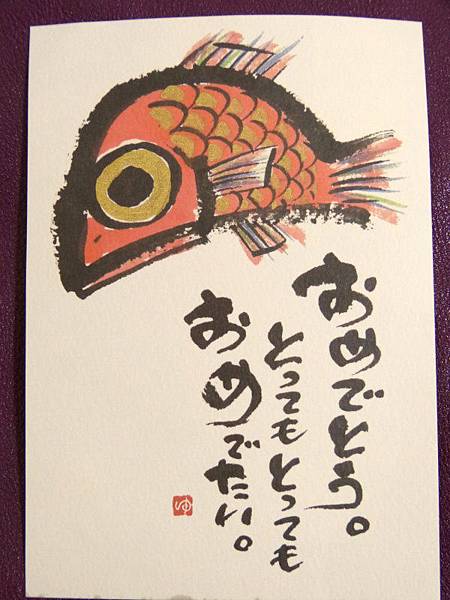 おめでとう。
とってもとっても
おめでたい。
ゆ